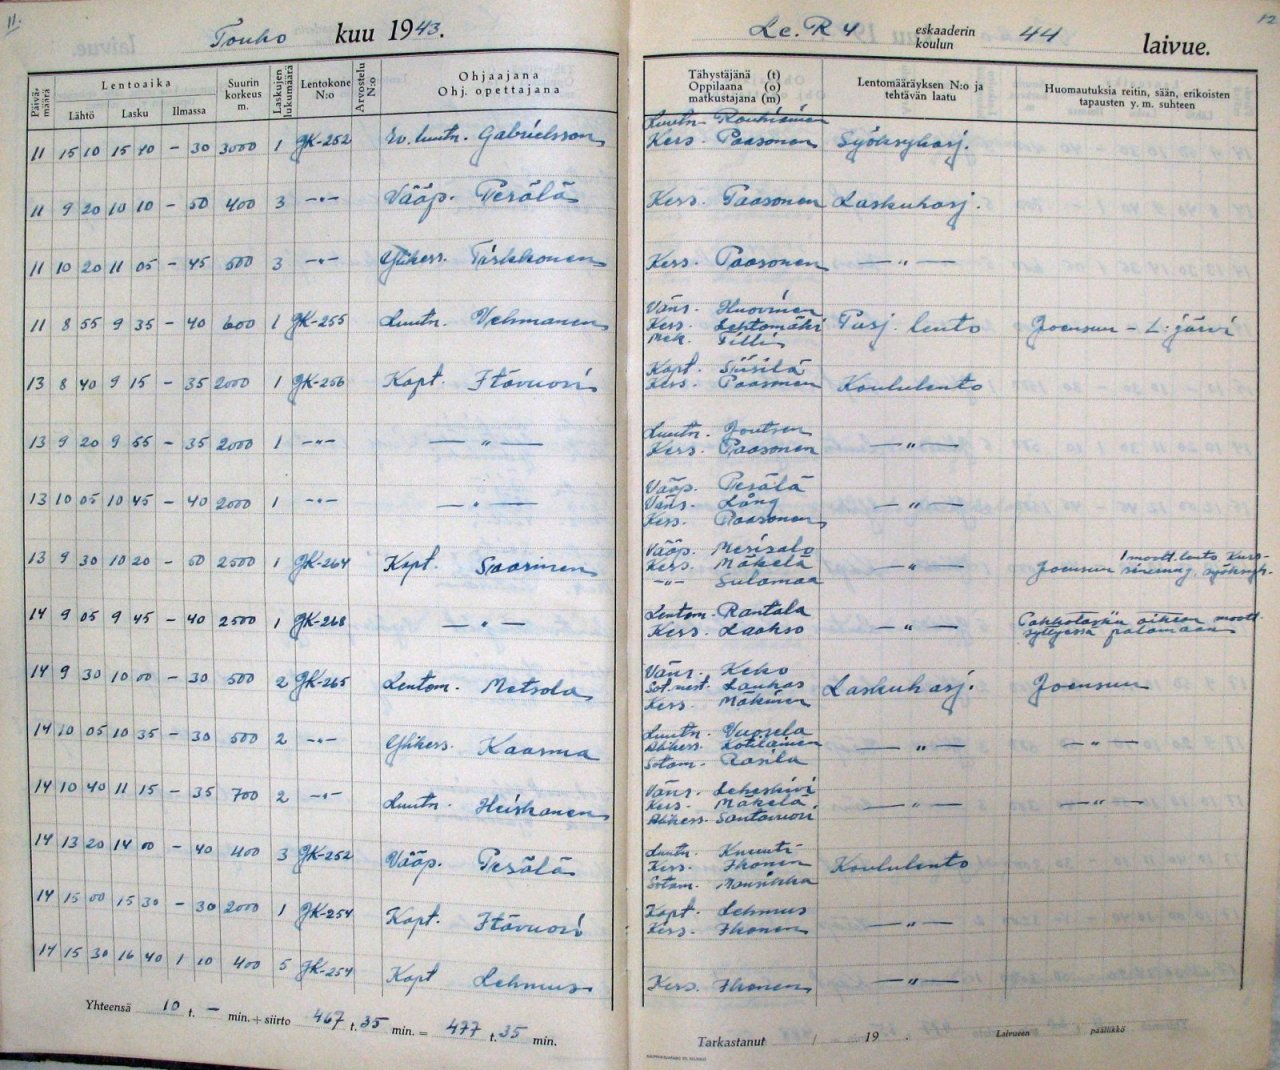 11.
Touko kuu 1943.
Le.R 4 eskaaderin koulun 44 laivue.
12
Päivämäärä
Lentoaika
Lähtö Lasku Ilmassa
Suurin korkeus m.
Laskujen lukumäärä
Lentokone N:o
Arvostelu N:o
Ohjaajana
Ohj. opettajana
Tähystäjänä (t)
Oppilaana (o)
matkustajana (m)
Lentomääräyksen N:o ja tehtävän laatu
Huomautuksia reitin, sään, erikoisten tapausten y. m. suhteen
Luutn. Rouhiainen
11 15 10 15 40 – 30 3000 1 JK-252 Ev. luutn. Gabrielsson Kers. Paasonen Syöksyharj.
11 9 20 10 10 – 50 400 3 –"– Vääp. Perälä Kers. Paasonen Laskuharj.
11 10 20 11 05 – 45 500 3 –"– Ylikers. Kers. Paasonen –"–
Väns. Huovinen
11 8 55 9 35 – 40 600 1 JK-255 Luutn. Vehmanen Kers. Lehtomäki lento Joensuu – L:järvi
Mek. Tilli
Kapt. Siisilä
13 8 40 9 15 – 35 2000 1 JK-256 Kapt. Itävuori Kers. Paasonen Koululento
Luutn. Joutsen
13 9 20 9 55 – 35 2000 1 –"– –"– Kers. Paasonen –"–
Vääp. Perälä
13 10 05 10 45 – 40 2000 1 –"– –"– Väns. Lång –"–
Kers. Paasonen
Vääp. Merisalo
13 9 30 10 20 – 50 2500 1 JK-264 Kapt. Saarinen Kers. Mäkelä –"– Joensuu 1 moott. lento,
–"– Sulamaa
Lentom. Rantala
14 9 05 9 45 – 40 2500 1 JK-268 –"– Kers. Laakso –"– Pakkolasku oikean moott. syttyessä palamaan
Väns. Keko
14 9 30 10 00 – 30 500 2 JK-265 Lentom. Metsola Sot.mest. Laukas Laskuharj. Joensuu
Kers. Mäkinen
Luutn. Vuorela
14 10 05 10 35 – 30 500 2 –"– Ylikers. Kaasma Alikers. Kotilainen –"– –"–
Sotam. Rasila
Väns. Leheskivi
14 10 40 11 15 – 35 700 2 –"– Luutn. Heiskanen Kers. Mäkelä –"– –"–
Alikers. Santavuori
Luutn. Knuuti
14 13 20 14 00 – 40 400 3 JK-252 Vääp. Perälä Kers. Ikonen Koululento
Sotam. Mansikka
Kapt. Lehmus
14 15 00 15 30 – 30 2000 1 JK-254 Kapt. Itävuori Kers. Ikonen –"–
14 15 30 16 40 1 10 400 5 JK-254 Kapt Lehmus Kers. Ikonen –"–
Yhteensä 10 t. – min. + siirto 467 t. 35 min. = 477 t. 35 min.
Tarkastanut / – 19 . Laivueen päällikkö